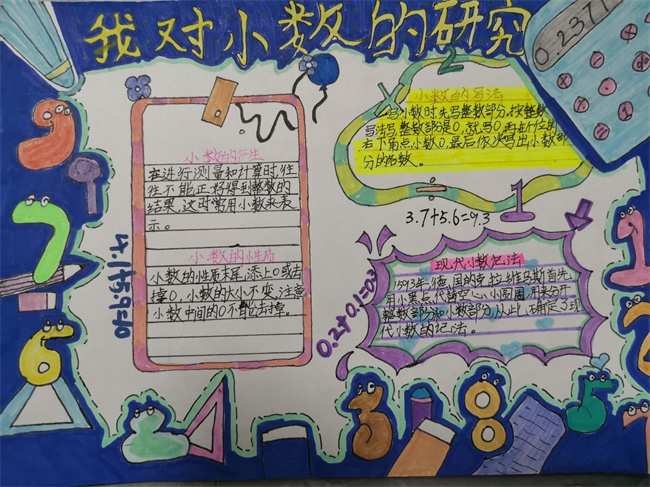 我对小数的研究
0.2371
小数的产生
在进行测量和计算时,往
往不能正好得到整数的
结果,这时常用小数来表
示。
小数的性质
小数的性质末尾添上0或去
掉0,小数的大小不变,注意
小数中间的0不能去掉。
小数的写法
写小数时先写整数部分,按整数
写法写,整数部分是0,就写0,再在个位的
右下角点小数点,最后依次写出小数部
分的每数。
3.7+5.6=9.3
4.1+5.9=10
0.2+0.1=0.3
现代小数记法
1593年,德国的克拉维马斯首先
用小黑点代替空心小圆圈用来分开
整数部分和小数部分,从此,确定了现
代小数的记法。